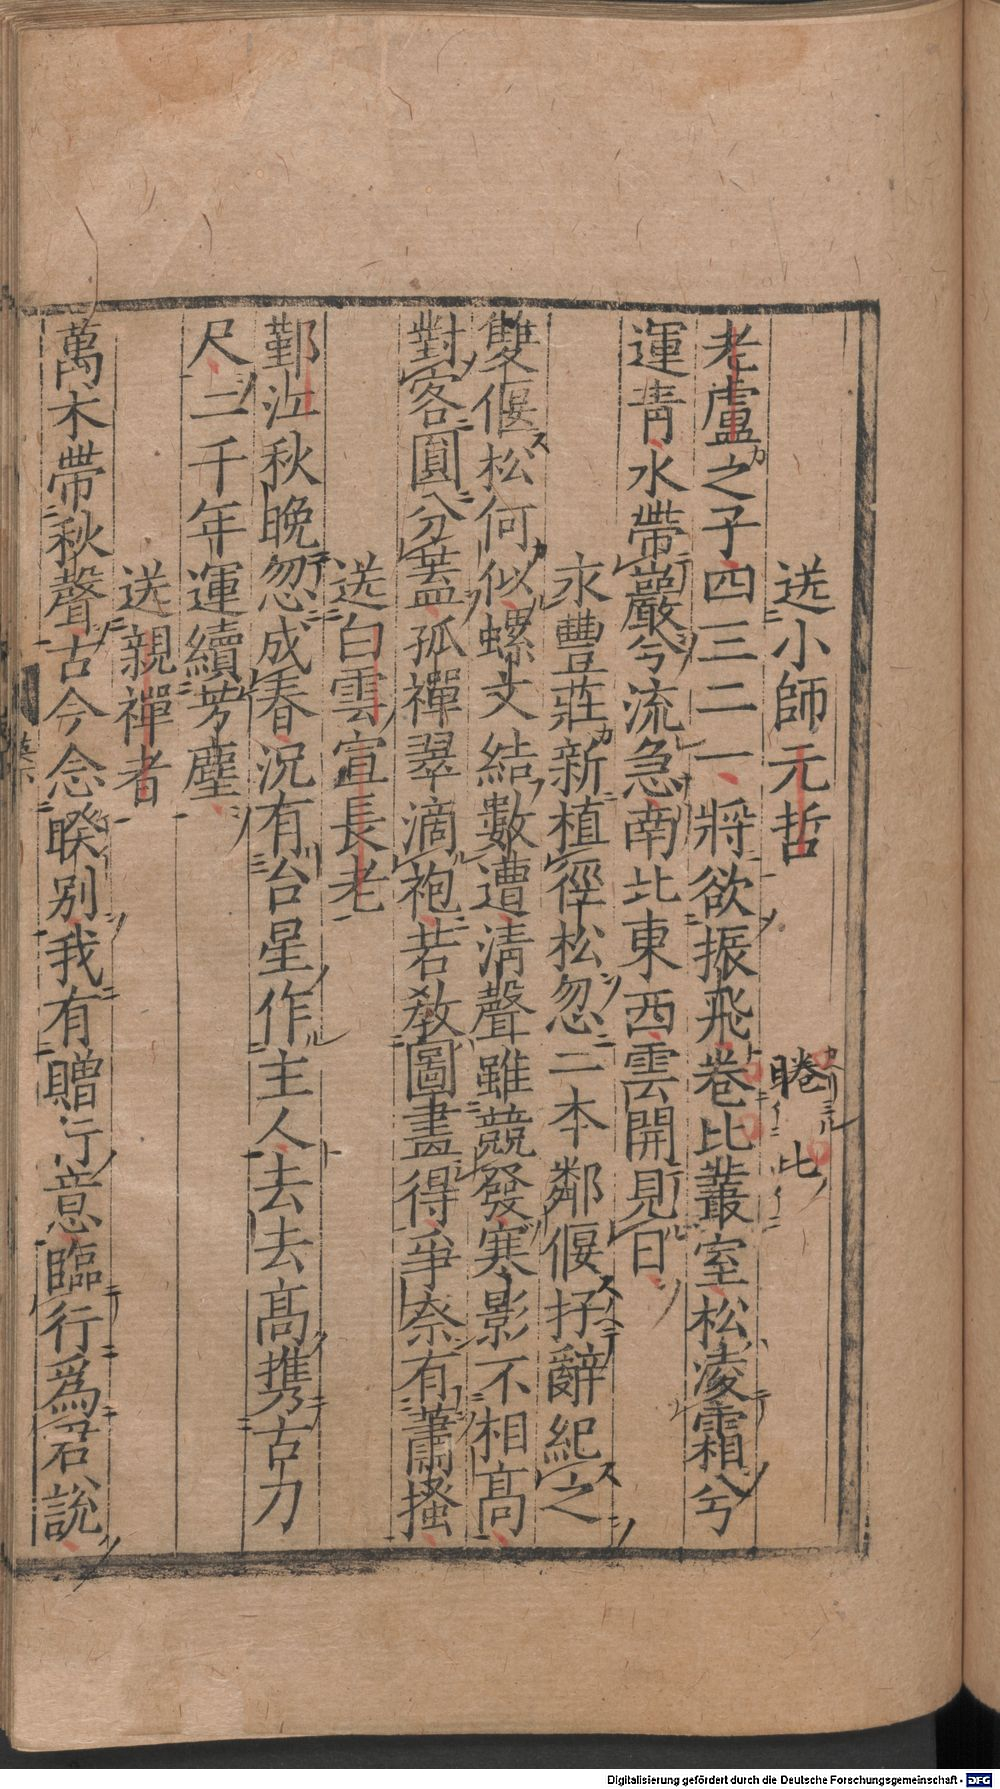 送小師元哲
睠 比
老盧之子四三二一將欲振飛卷比叢室松凌霜兮
運青水帶巖兮流急南北東西雲開見日
永豐莊新植徑松忽二本鄰偃抒辭紀之
雙偃松何似螺文結數遭清聲雖競發寒影不相高
對客圓分葢孤禪翠滴袍若教圖畫得爭奈有蕭搔
送白雲宣長老
鄞江秋晚忽成春況有台星作主人去去高携古刀
尺二千年運續芳塵
送親禪者
萬木帶秋聲古今念暌别我有贈行意臨行爲君說
Digitalisierung gefördert durch die Deutsche Forschungsgemeinschaft - DFG